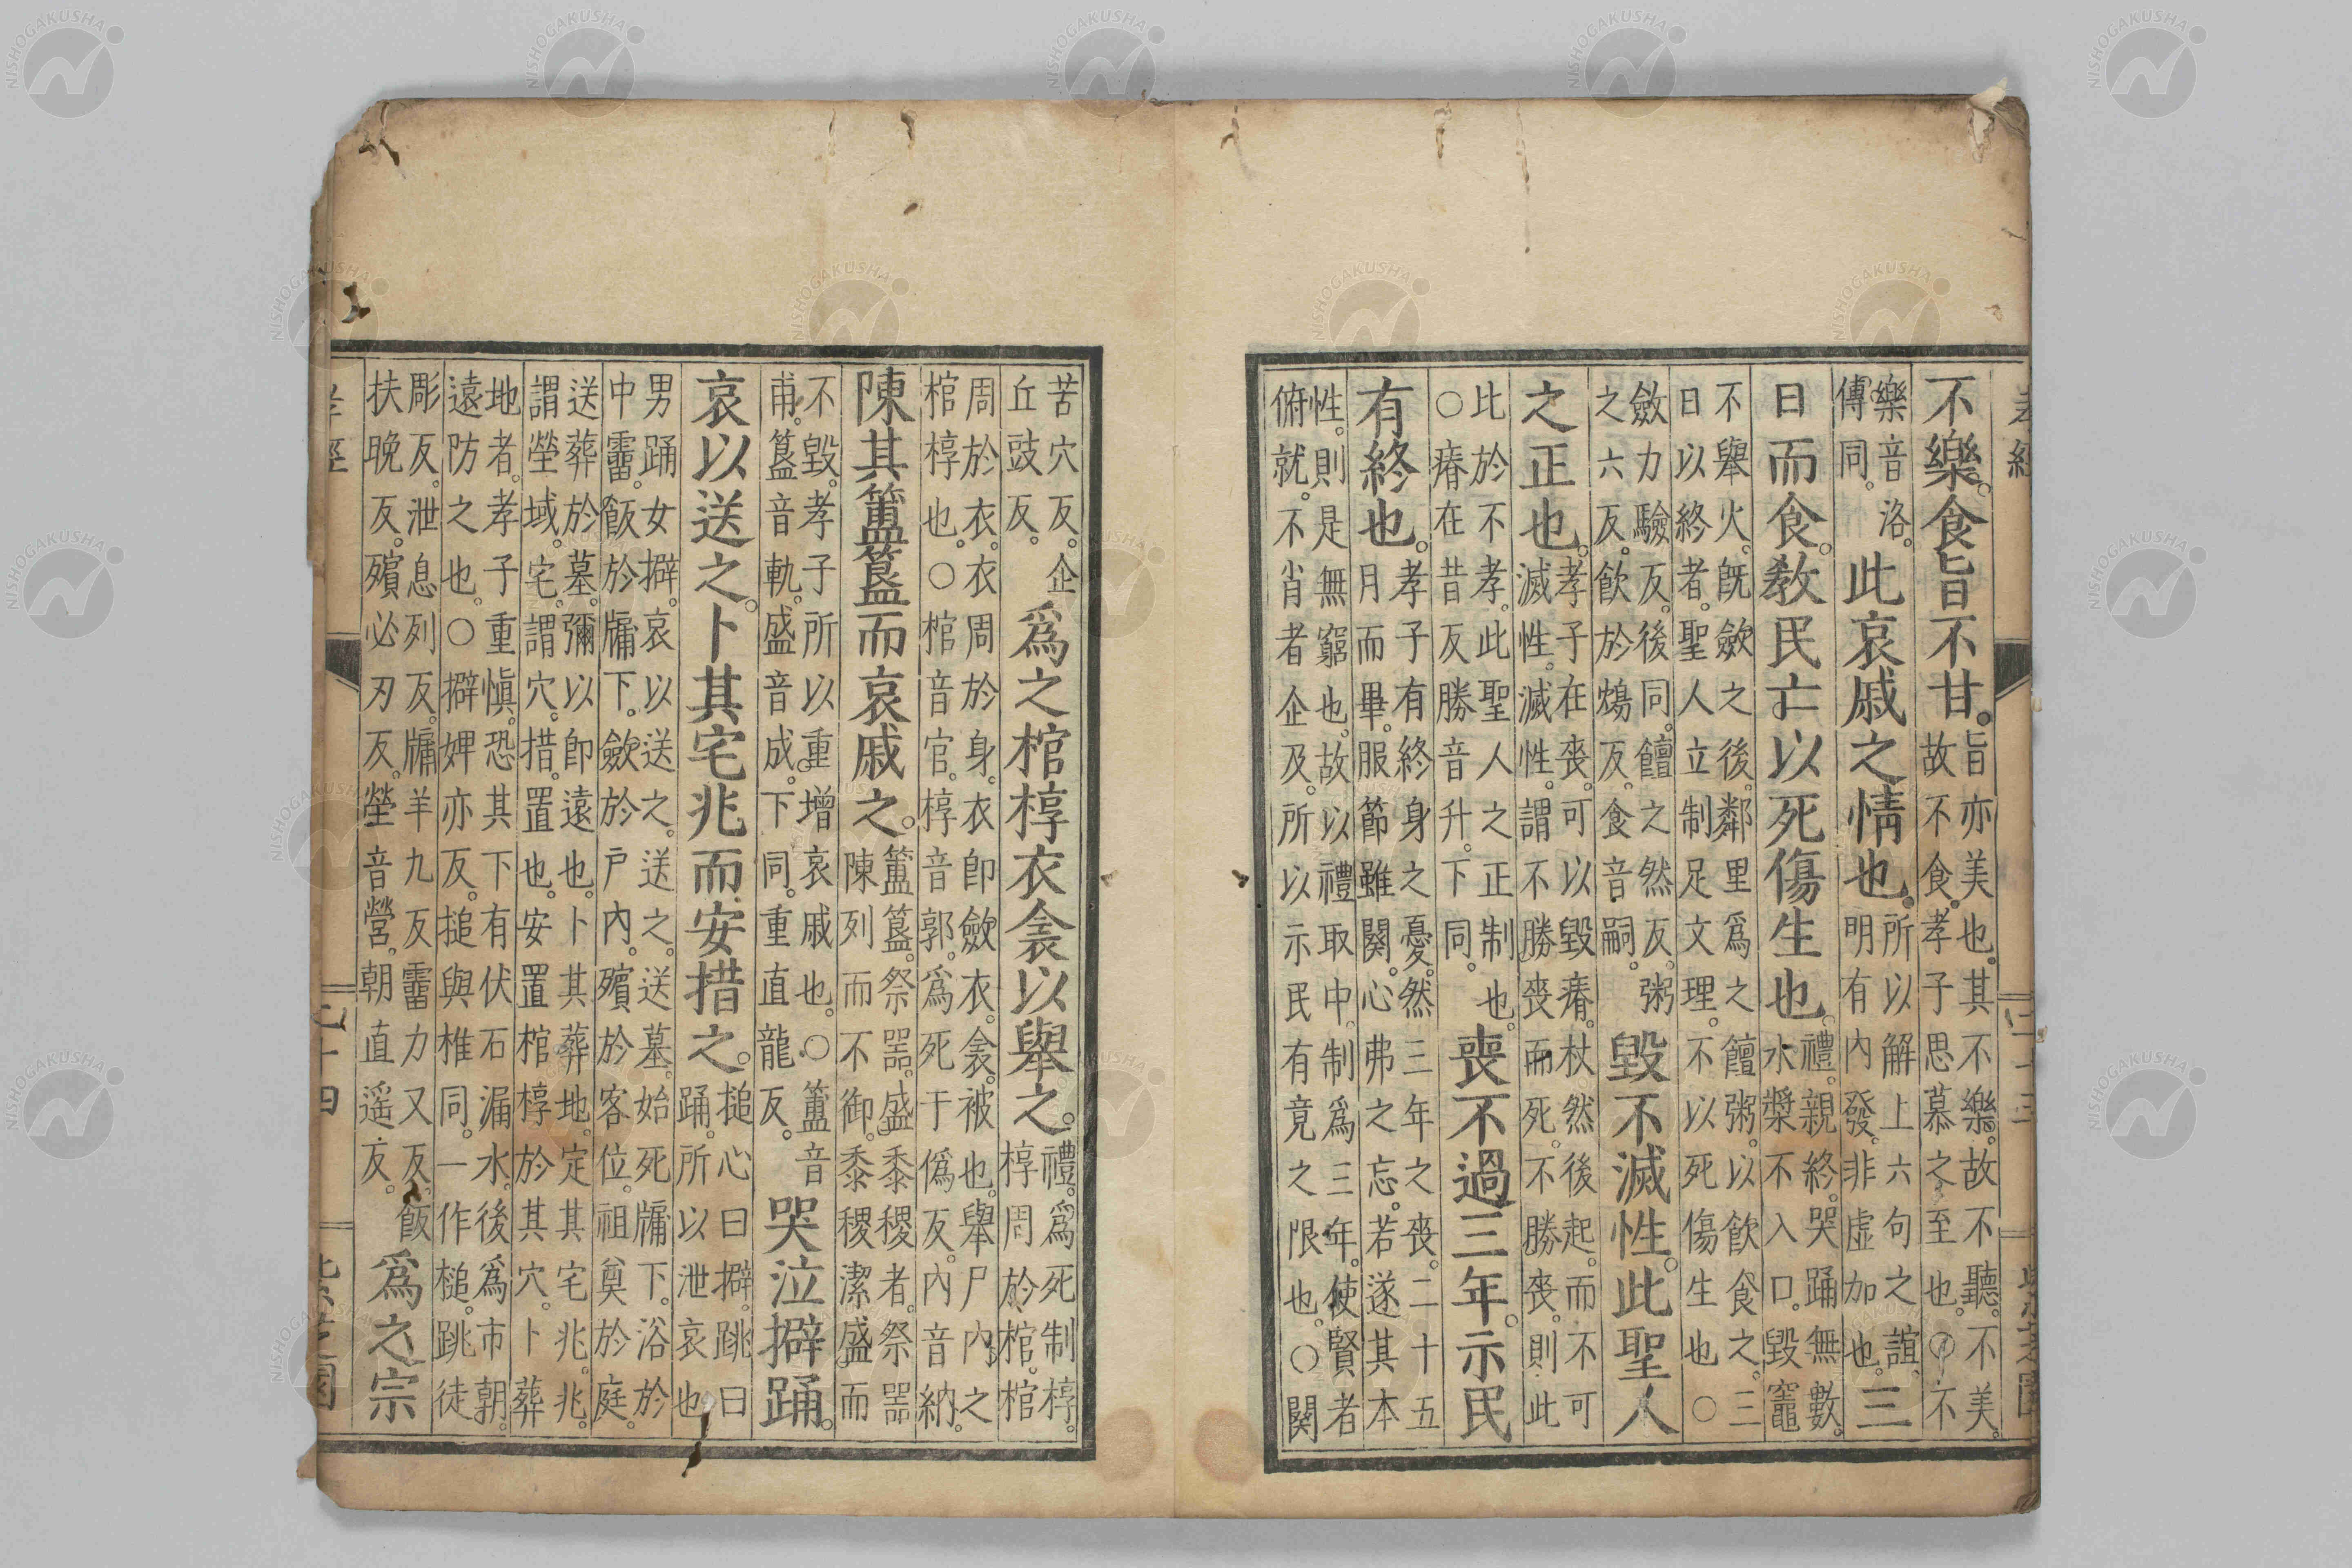 不樂。食旨不甘。
旨亦美也。其不樂。故不聽。不美。
故不食。孝子思慕之至也。○不
樂音洛。
傳同。
此哀戚之情也。
所以解上六句之誼。
明有內發。非虛加也。
三
日而食。教民亡以死傷生也。
禮。親終。哭踊無數。
水槳不入口。毀竈
不舉火。旣斂之後。鄰里爲之饘粥。以飲食之。三
日以終者。聖人立制足文理。不以死傷生也○
斂力驗反。後同。饘之然反。粥
之六反。飲於鴆反。食音嗣。
毀不滅性。此聖人
之正也。
孝子在喪。可以毀瘠。杖然後起。而不可
滅性。滅性。謂不勝喪而死。不勝喪。則此
此於不孝。此聖人之正制也。
○瘠在昔反勝音升。下同。
喪不過三年。示民
有終也。
孝子有終身之憂。然三年之喪。二十五
月而畢。服節雖闋。心弗之忘。若遂其本
性。則是無窮也。故以禮取中。制爲三年。使賢者
俯就。不肖者企及。所以示民有竟之限也。○闋
苦穴反。企
丘豉反。
爲之棺椁衣衾以舉之。
禮。爲死制椁。
椁周於棺。棺
周於衣。衣周於身。衣卽斂衣。衾。被也。舉尸內之
棺椁也。○棺音官。椁音郭。爲死于僞反。內音納。
陳其簠簋而哀戚之。
簠簋。祭器。盛黍稷者。祭器
陳列而不御。黍稷潔盛而
不毀。孝子所以重增哀戚也。○簠音
甫。簋音軌。盛音成。下同。重直龍反。
哭泣擗踊。
哀以送之。卜其宅兆而安措之。
搥心曰擗。跳曰
踊。所以泄哀也
男踊女擗。哀以送之。送之。送墓。始死牖下。浴於
中霤。飯於牖下。斂於戶內。殯於客位。祖奠於庭。
送葬於墓。彌以卽遠也。卜其葬地。定其宅兆。兆。
謂塋域。宅。謂穴。措。置也。安置棺椁於其穴。卜葬
地者。孝子重愼。恐其下有伏石漏水。後爲市朝。
遠防之也。○擗婢亦反。搥與椎同。一作槌。跳徒
彫反。泄息列反。牖羊九反霤力又反。飯
扶晚反。殯必刃反。塋音營。朝直遥反。
爲之宗